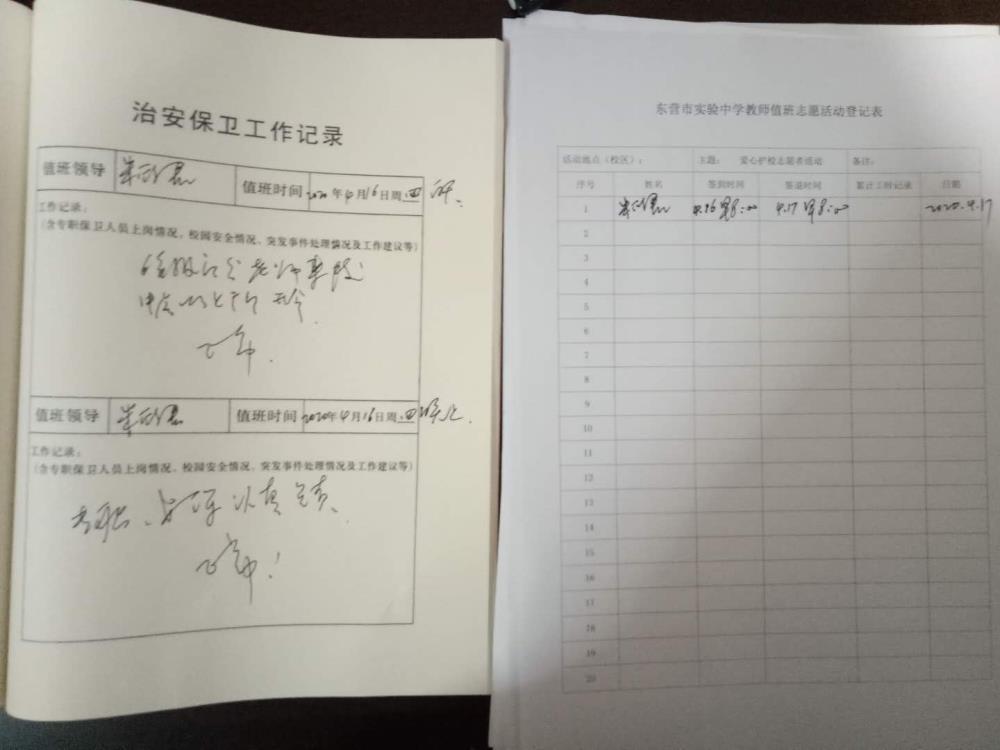 治安保卫工作记录
值班领导
值班时间 2020年4月16日周四
工作记录:
(含专职保卫人员上岗情况、校园安全情况、突发事件处理情况及工作建议等)
正常.
值班领导
值班时间 2020年4月16日周四 晚上.
工作记录:
(含专职保卫人员上岗情况、校园安全情况、突发事件处理情况及工作建议等)
认真负责.
正常!
东营市实验中学教师值班志愿活动登记表
活动地点(校区): 主题: 爱心护校志愿者活动 备注:
序号 姓名 签到时间 签退时间 累计工时记录 日期
1 4.16 早8:00 4.17 早8:00 2020.4.17
2
3
4
5
6
7
8
9
10
11
12
13
14
15
16
17
18
19
20